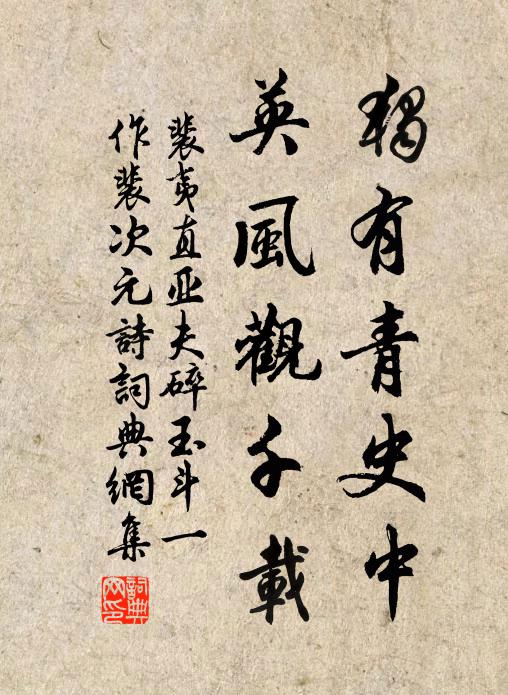 獨有青史中
英風觀千載
裴夷直亚夫碎玉斗一
作裴次元詩詞典網集
詞典
网印